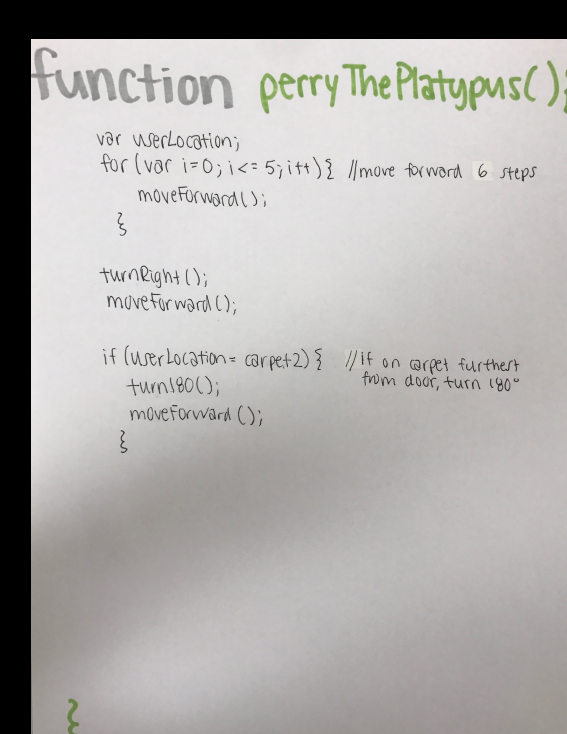 function perryThePlatypus(){
var userLocation;
for (var i=0; i<= 5; i++){ //move forward 6 steps
moveForward();
}
turnRight();
moveForward();
if (userLocation= carpet2) { //if on carpet furthest
from door, turn 180°
turn180();
moveForward();
}
}